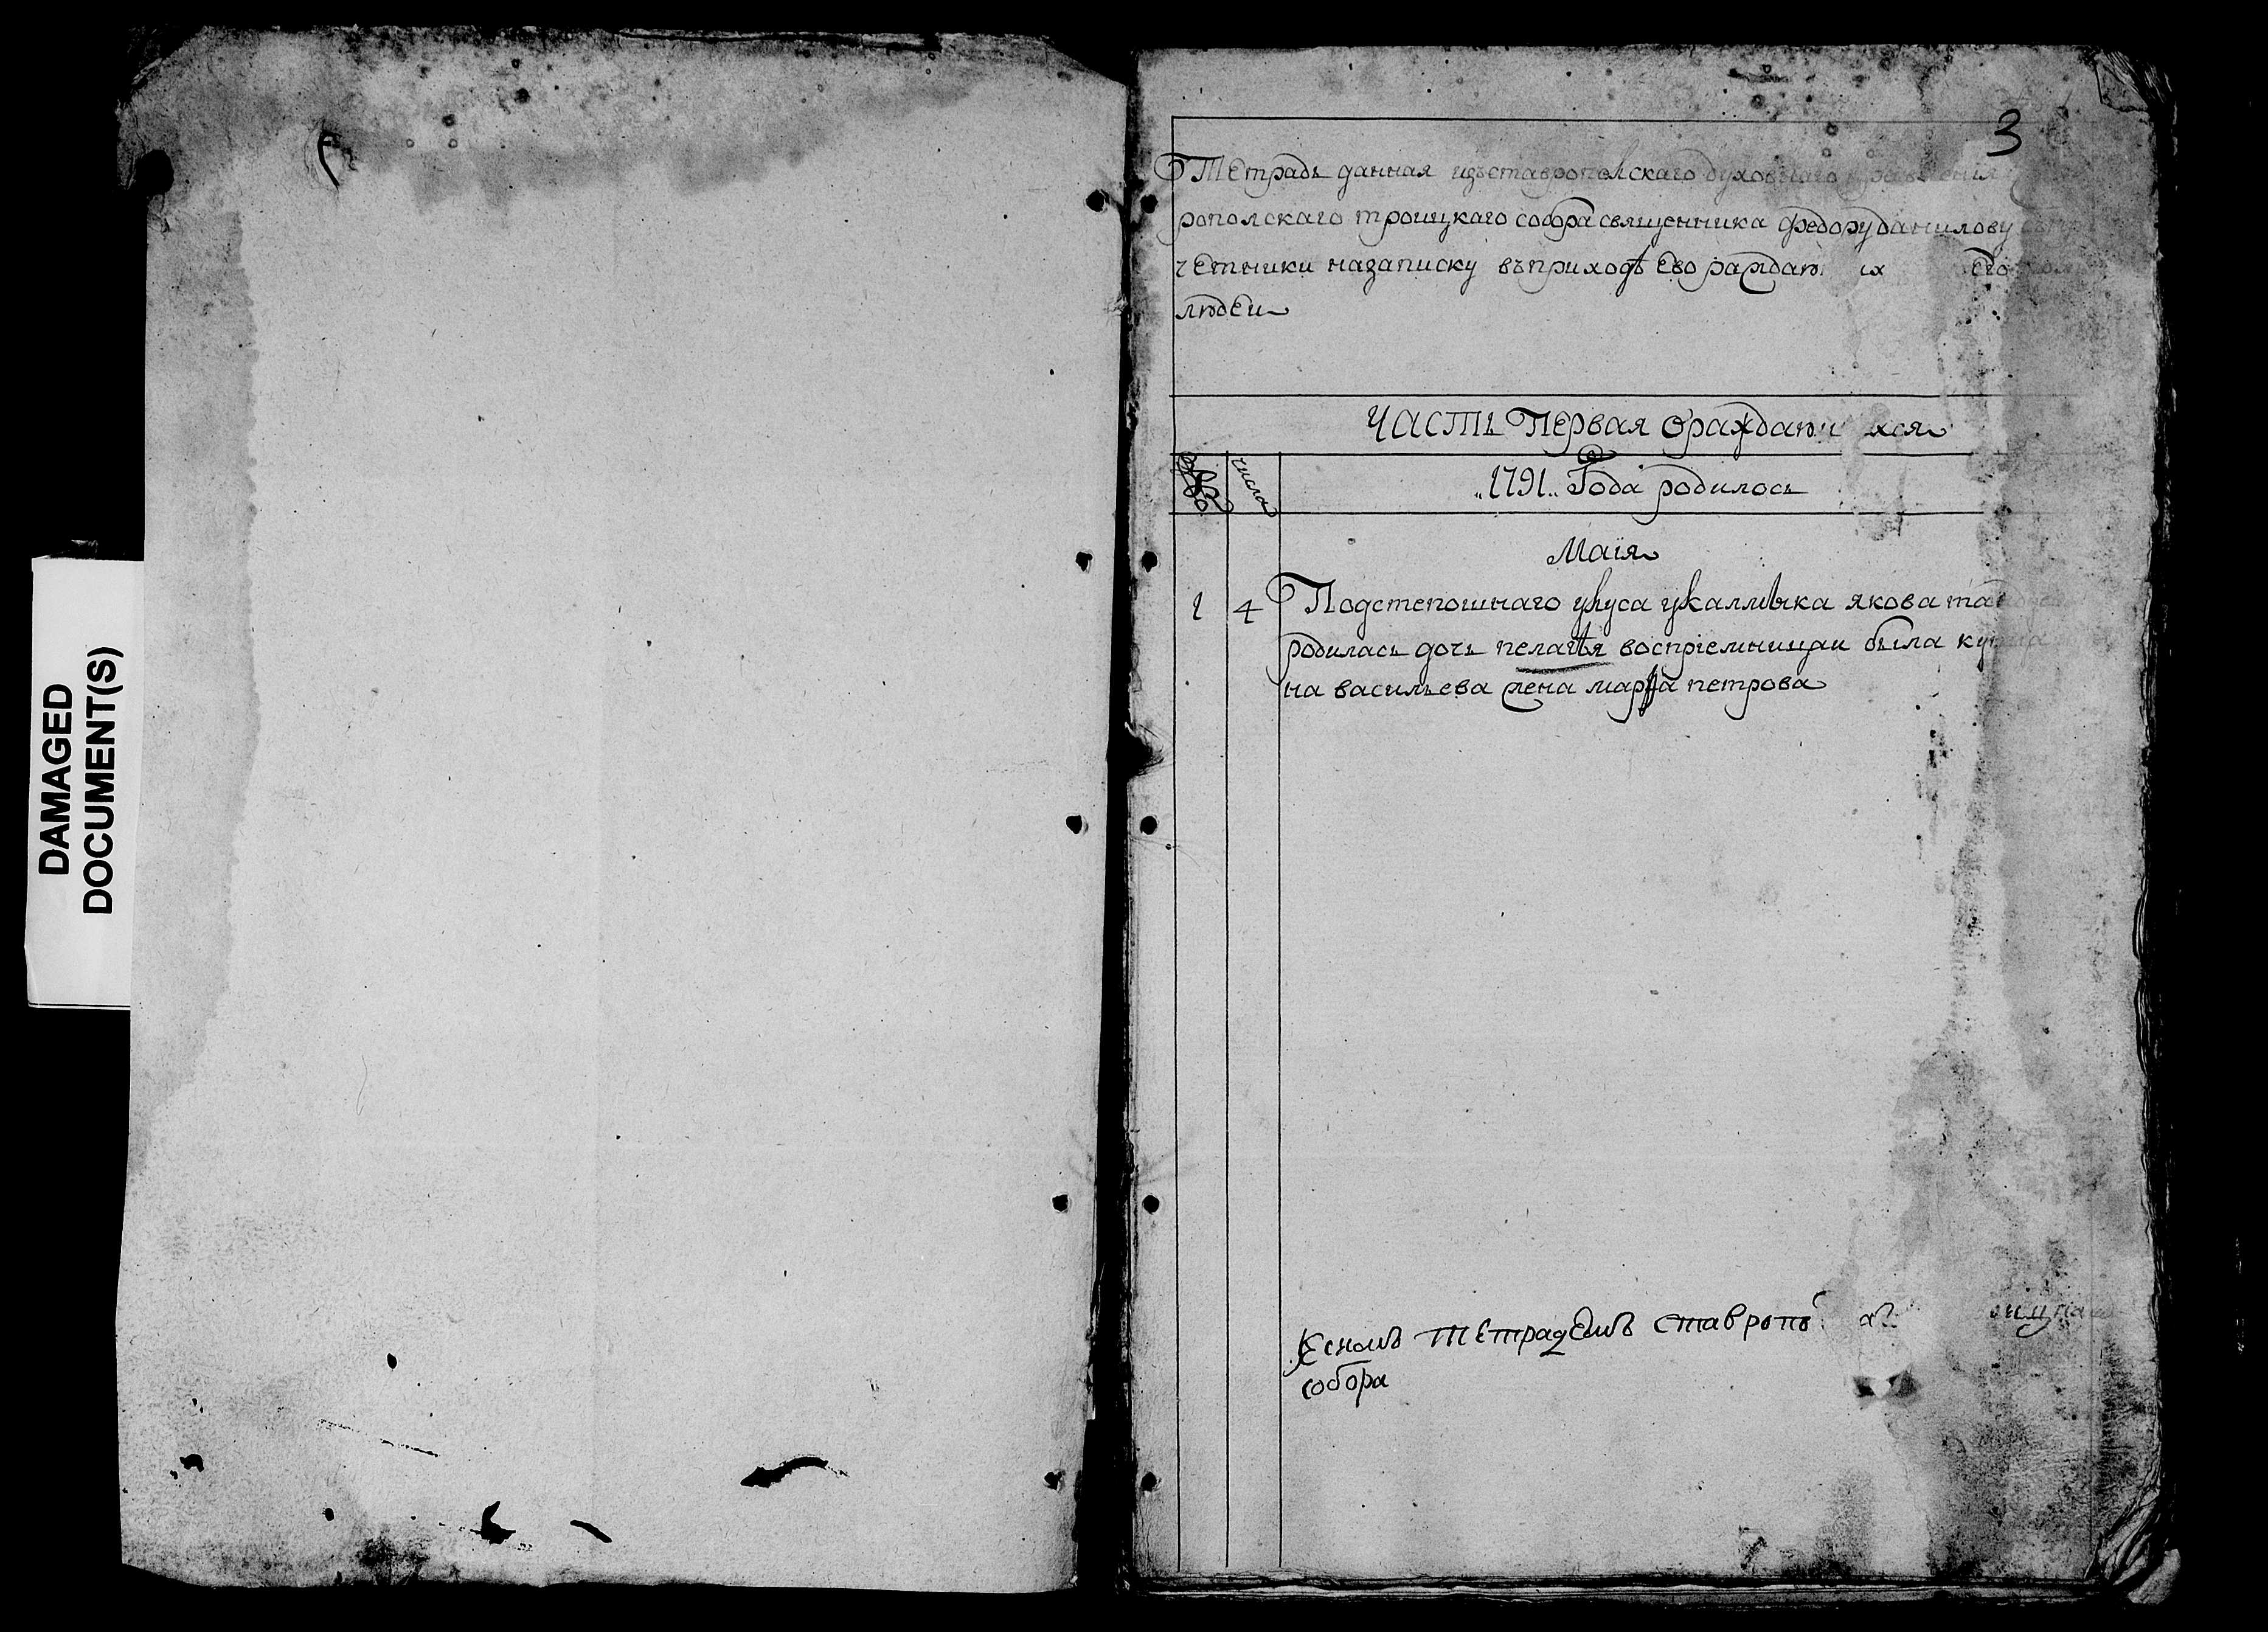 DAMAGED
DOCUMENT(S)
3
Тетрадь данная изъ ставропольскаго духовнаго правления
ропольскаго троицкаго собора священника федору данилову
четники на записку въ приходѣ ево раждаю их ево
людеи
Часть первая о раждаю хся
числа
1791 Года родилось
Маїя
1 4 Подстепошнаго улуса у калмыка якова
родилась дочь пелагѣя воспрїемницаи была
на васильева жена марѳа петрова
К сиомъ тетрадемъ ставропо
собора